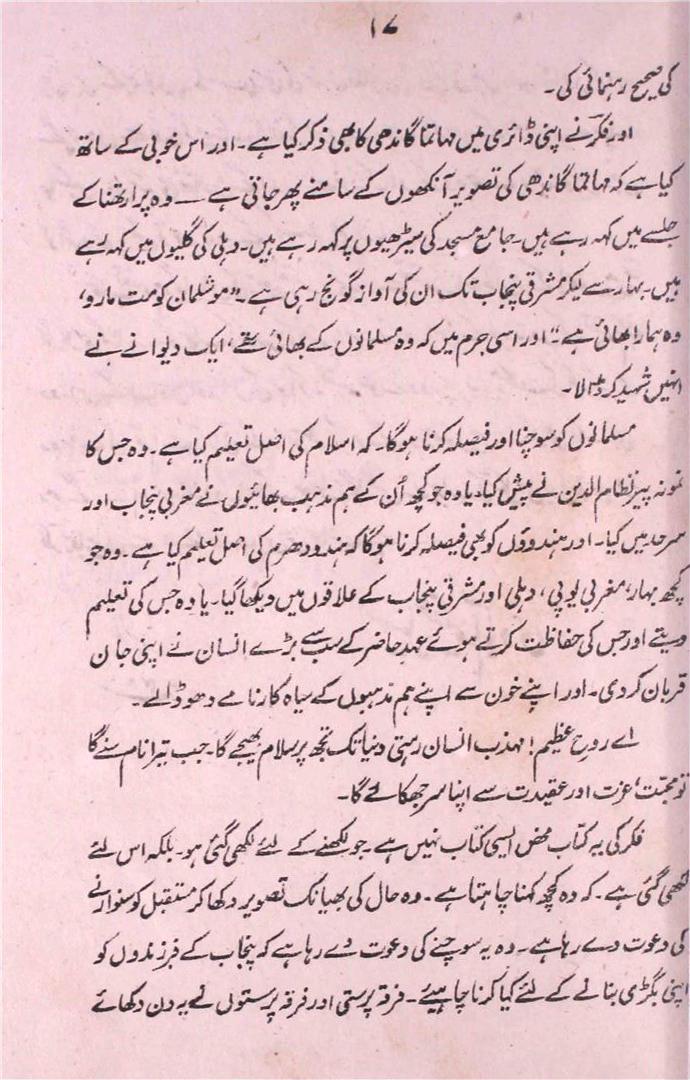 ۱۷
کی صحیح رہنمائی کی۔
اور فکرؔ نے اپنی ڈائری میں مہاتما گاندھی کا بھی ذکر کیا ہے۔ اور اس خوبی کے ساتھ
کیا ہے کہ مہاتما گاندھی کی تصویر آنکھوں کے سامنے پھر جاتی ہے — وہ پرارتھنا کے
جلسے میں کہہ رہے ہیں۔ جامع مسجد کی سیڑھیوں پر کہہ رہے ہیں۔ دہلی کی گلیوں میں کہہ رہے
ہیں۔ بہار سے لیکر مشرقی پنجاب تک ان کی آواز گونج رہی ہے۔ "موسلمان کو مت مارو،
وہ ہمارا بھائی ہے" اور اسی جرم میں کہ وہ مسلمانوں کے بھائی تھے، ایک دیوانے نے
انہیں شہید کر ڈالا۔
مسلمانوں کو سوچنا اور فیصلہ کرنا ہوگا۔ کہ اسلام کی اصل تعلیم کیا ہے۔ وہ جس کا
نمونہ پیر نظام الدین نے پیش کیا۔ یا وہ جو کچھ اُن کے ہم مذہب بھائیوں نے مغربی پنجاب اور
سرحد میں کیا۔ اور ہندوؤں کو بھی فیصلہ کرنا ہوگا کہ ہندو دھرم کی اصل تعلیم کیا ہے۔ وہ جو
کچھ بہار، مغربی یوپی، دہلی اور مشرقی پنجاب کے علاقوں میں دیکھا گیا۔ یا وہ جس کی تعلیم
دیتے اور جس کی حفاظت کرتے ہوئے عہدِ حاضر کے سب سے بڑے انسان نے اپنی جان
قربان کر دی۔ اور اپنے خون سے اپنے ہم مذہبوں کے سیاہ کارنامے دھو ڈالے۔
اے روحِ عظیم! مہذب انسان رہتی دنیا تک تجھ پر سلام بھیجے گا۔ جب تیرا نام سنے گا
تو محبت، عزت اور عقیدت سے اپنا سر جھکائے گا۔
فکر کی یہ کتاب محض ایسی کتاب نہیں ہے۔ جو لکھنے کے لئے لکھی گئی ہو۔ بلکہ اس لئے
لکھی گئی ہے۔ کہ وہ کچھ کہنا چاہتا ہے۔ وہ حال کی بھیانک تصویر دکھا کر مستقبل کو سنوارنے
کی دعوت دے رہا ہے۔ وہ یہ سوچنے کی دعوت دے رہا ہے کہ پنجاب کے فرزندوں کو
اپنی بگڑی بنانے کے لئے کیا کرنا چاہیئے۔ فرقہ پرستی اور فرقہ پرستوں نے یہ دن دکھائے